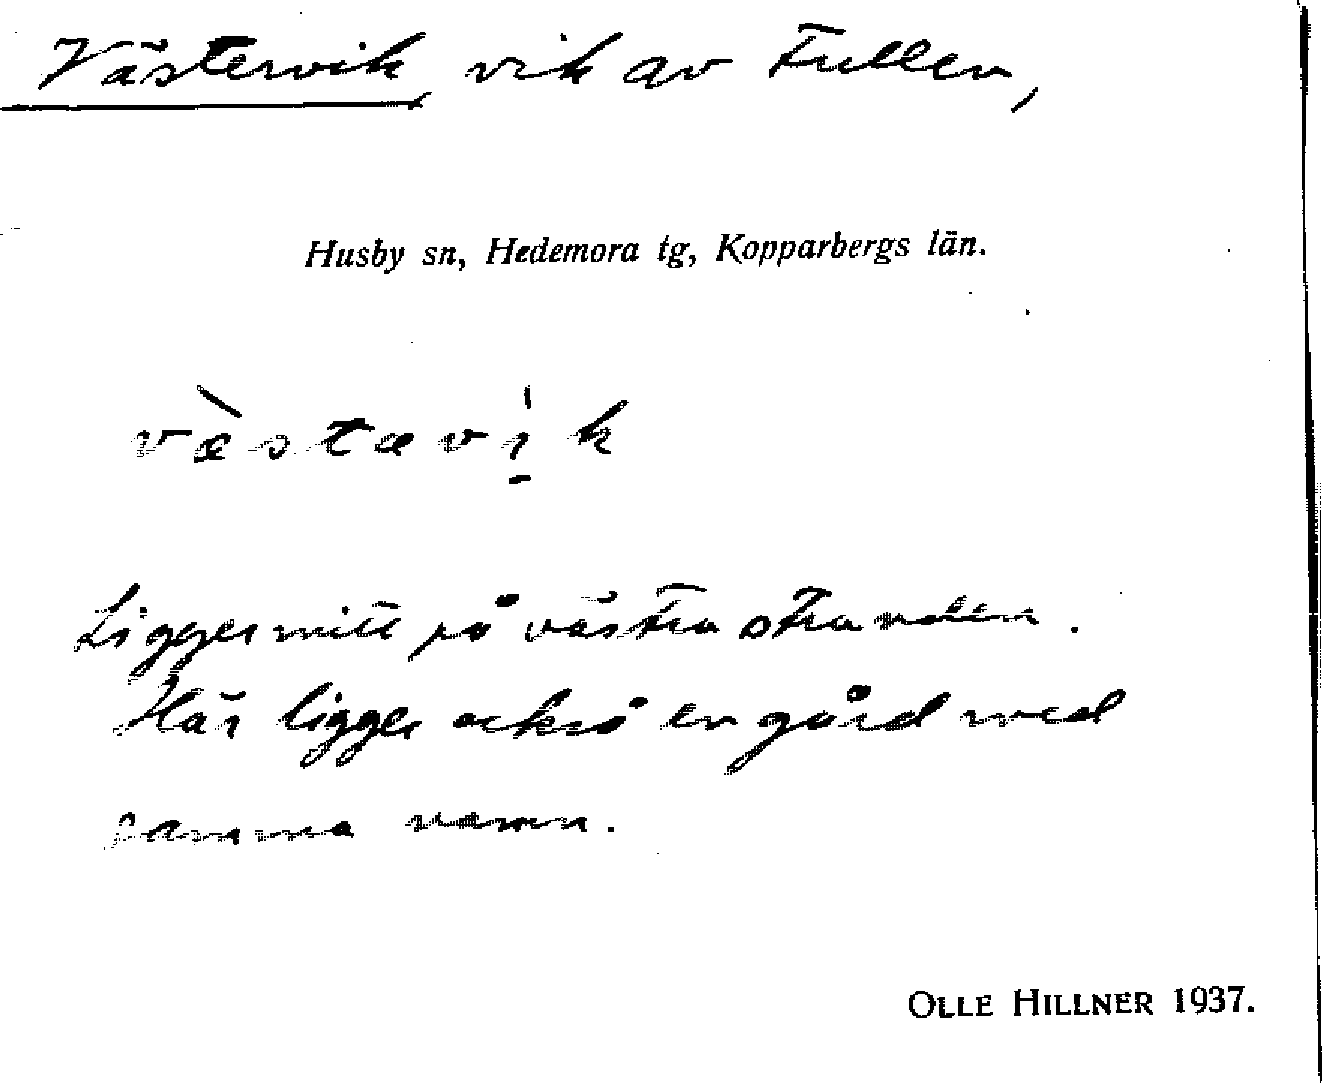 Västervik, vik av Fullen,
Husby sn, Hedemora tg, Kopparbergs län.
væ̀stævı̍k
Ligger mitt på västra stranden.
Här ligger också en gård med
samma namn.
OLLE HILLNER 1937.